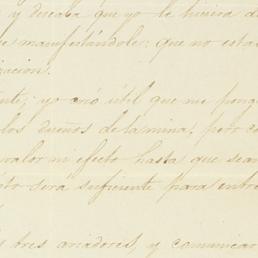 y deseaba que yo le hiciera
manifestándole; que no esta
zacion.
yo creó útil que me pong
los dueños de la mina, pero co
valor ni efecto hasta que sean
sto será suficiente para entr
tres aviadores, y comunicar